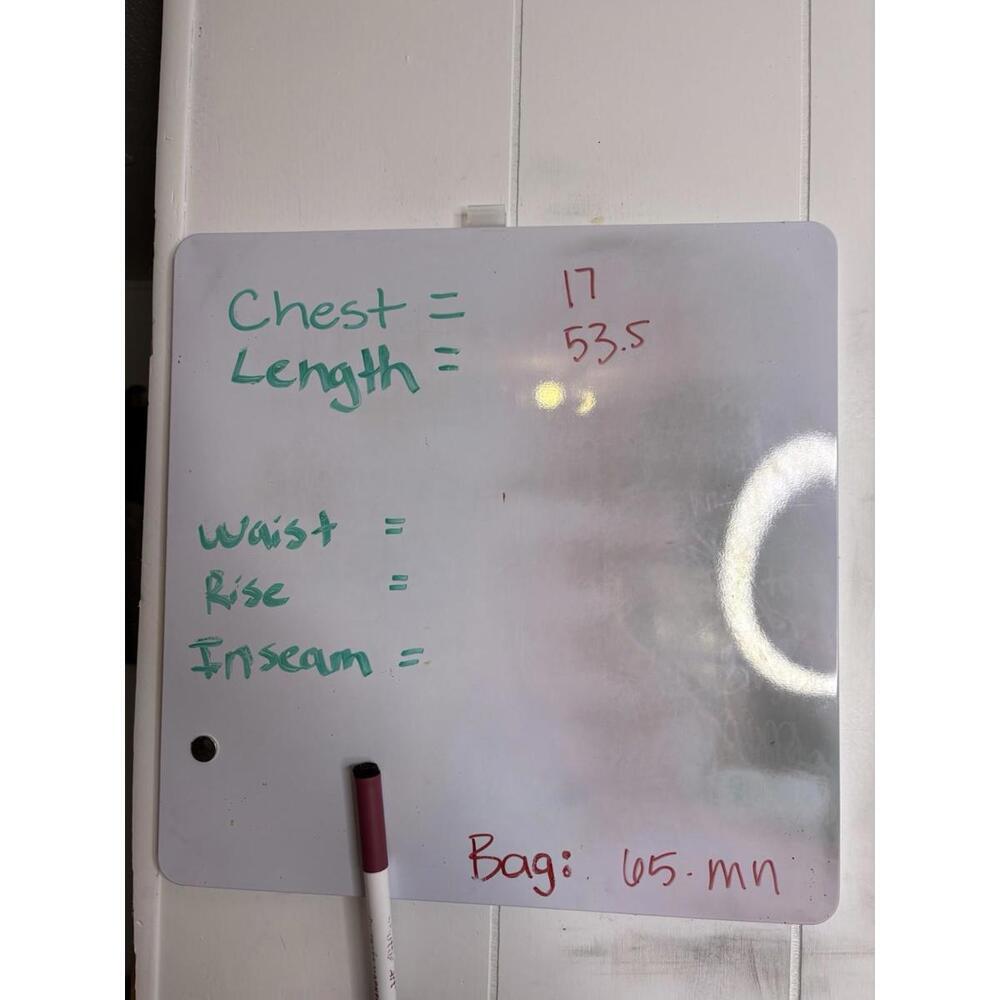 Chest = 17
Length = 53.5
Waist =
Rise =
Inseam =
Bag: 65-mn